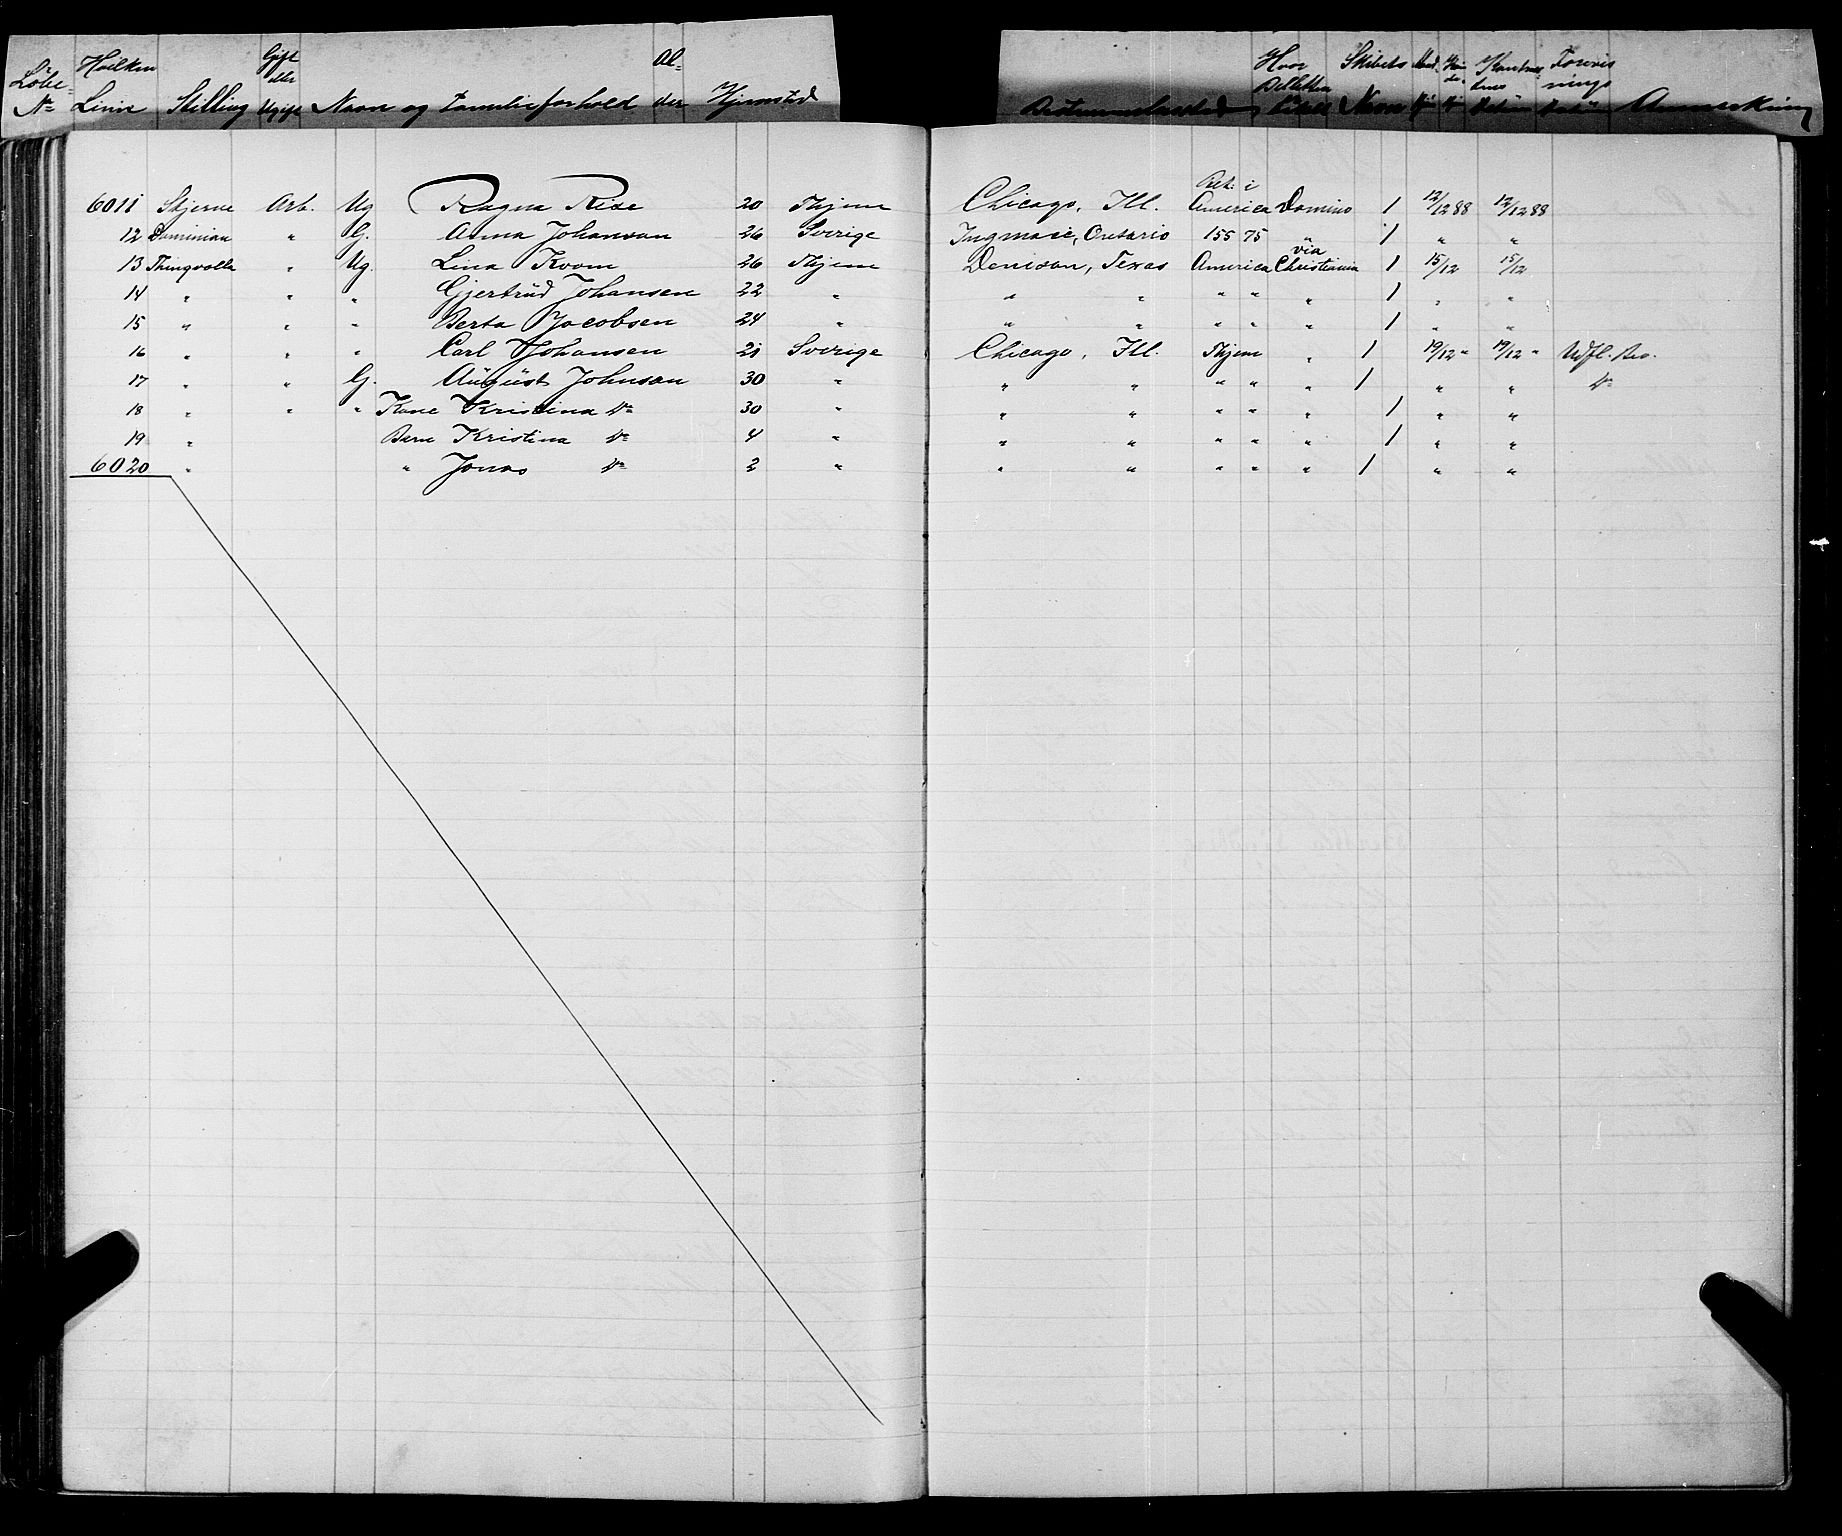 Löbe- No Hvilken Linie Stilling Gift eller Ugift Navn og Familieforhold Al-der Hjemsted Bestemmelsessted Hvor Billetten Löst Skibets Navn Anmerkning
6011 Stjerne Arb. Ug Ragna Rise 20 Thjem Chicago, Ill. Bet. i America Domino 1 12/12 88 12/12 88
12 Dominion " G. Anna Johanson 26 Sverige Ingmacie, Ontario 155 75 " 1 " "
13 Thingvalla " Ug. Lina Kvom 26 Thjem Denison, Texas America via Christiania 1 15/12 15/12
14 " " " Gjertrüd Johansen 22 " " " " " " 1 " "
15 " " " Berta Jacobsen 24 " " " " " " 1 " "
16 " " " Carl Johansen 21 Sverige Chicago, Ill. Thjem " 1 19/12 " 19/12 " Udfl. Bev.
17 " " G. Aügüst Johnson 30 " " " " " " 1 " " Do
18 " " " Kone Kristina Do 30 " " " " " " 1 " "
19 " Barn Kristina Do 4 " " " " " " 1 " "
6020 " " Jonas Do 2 " " " " " " 1 " "